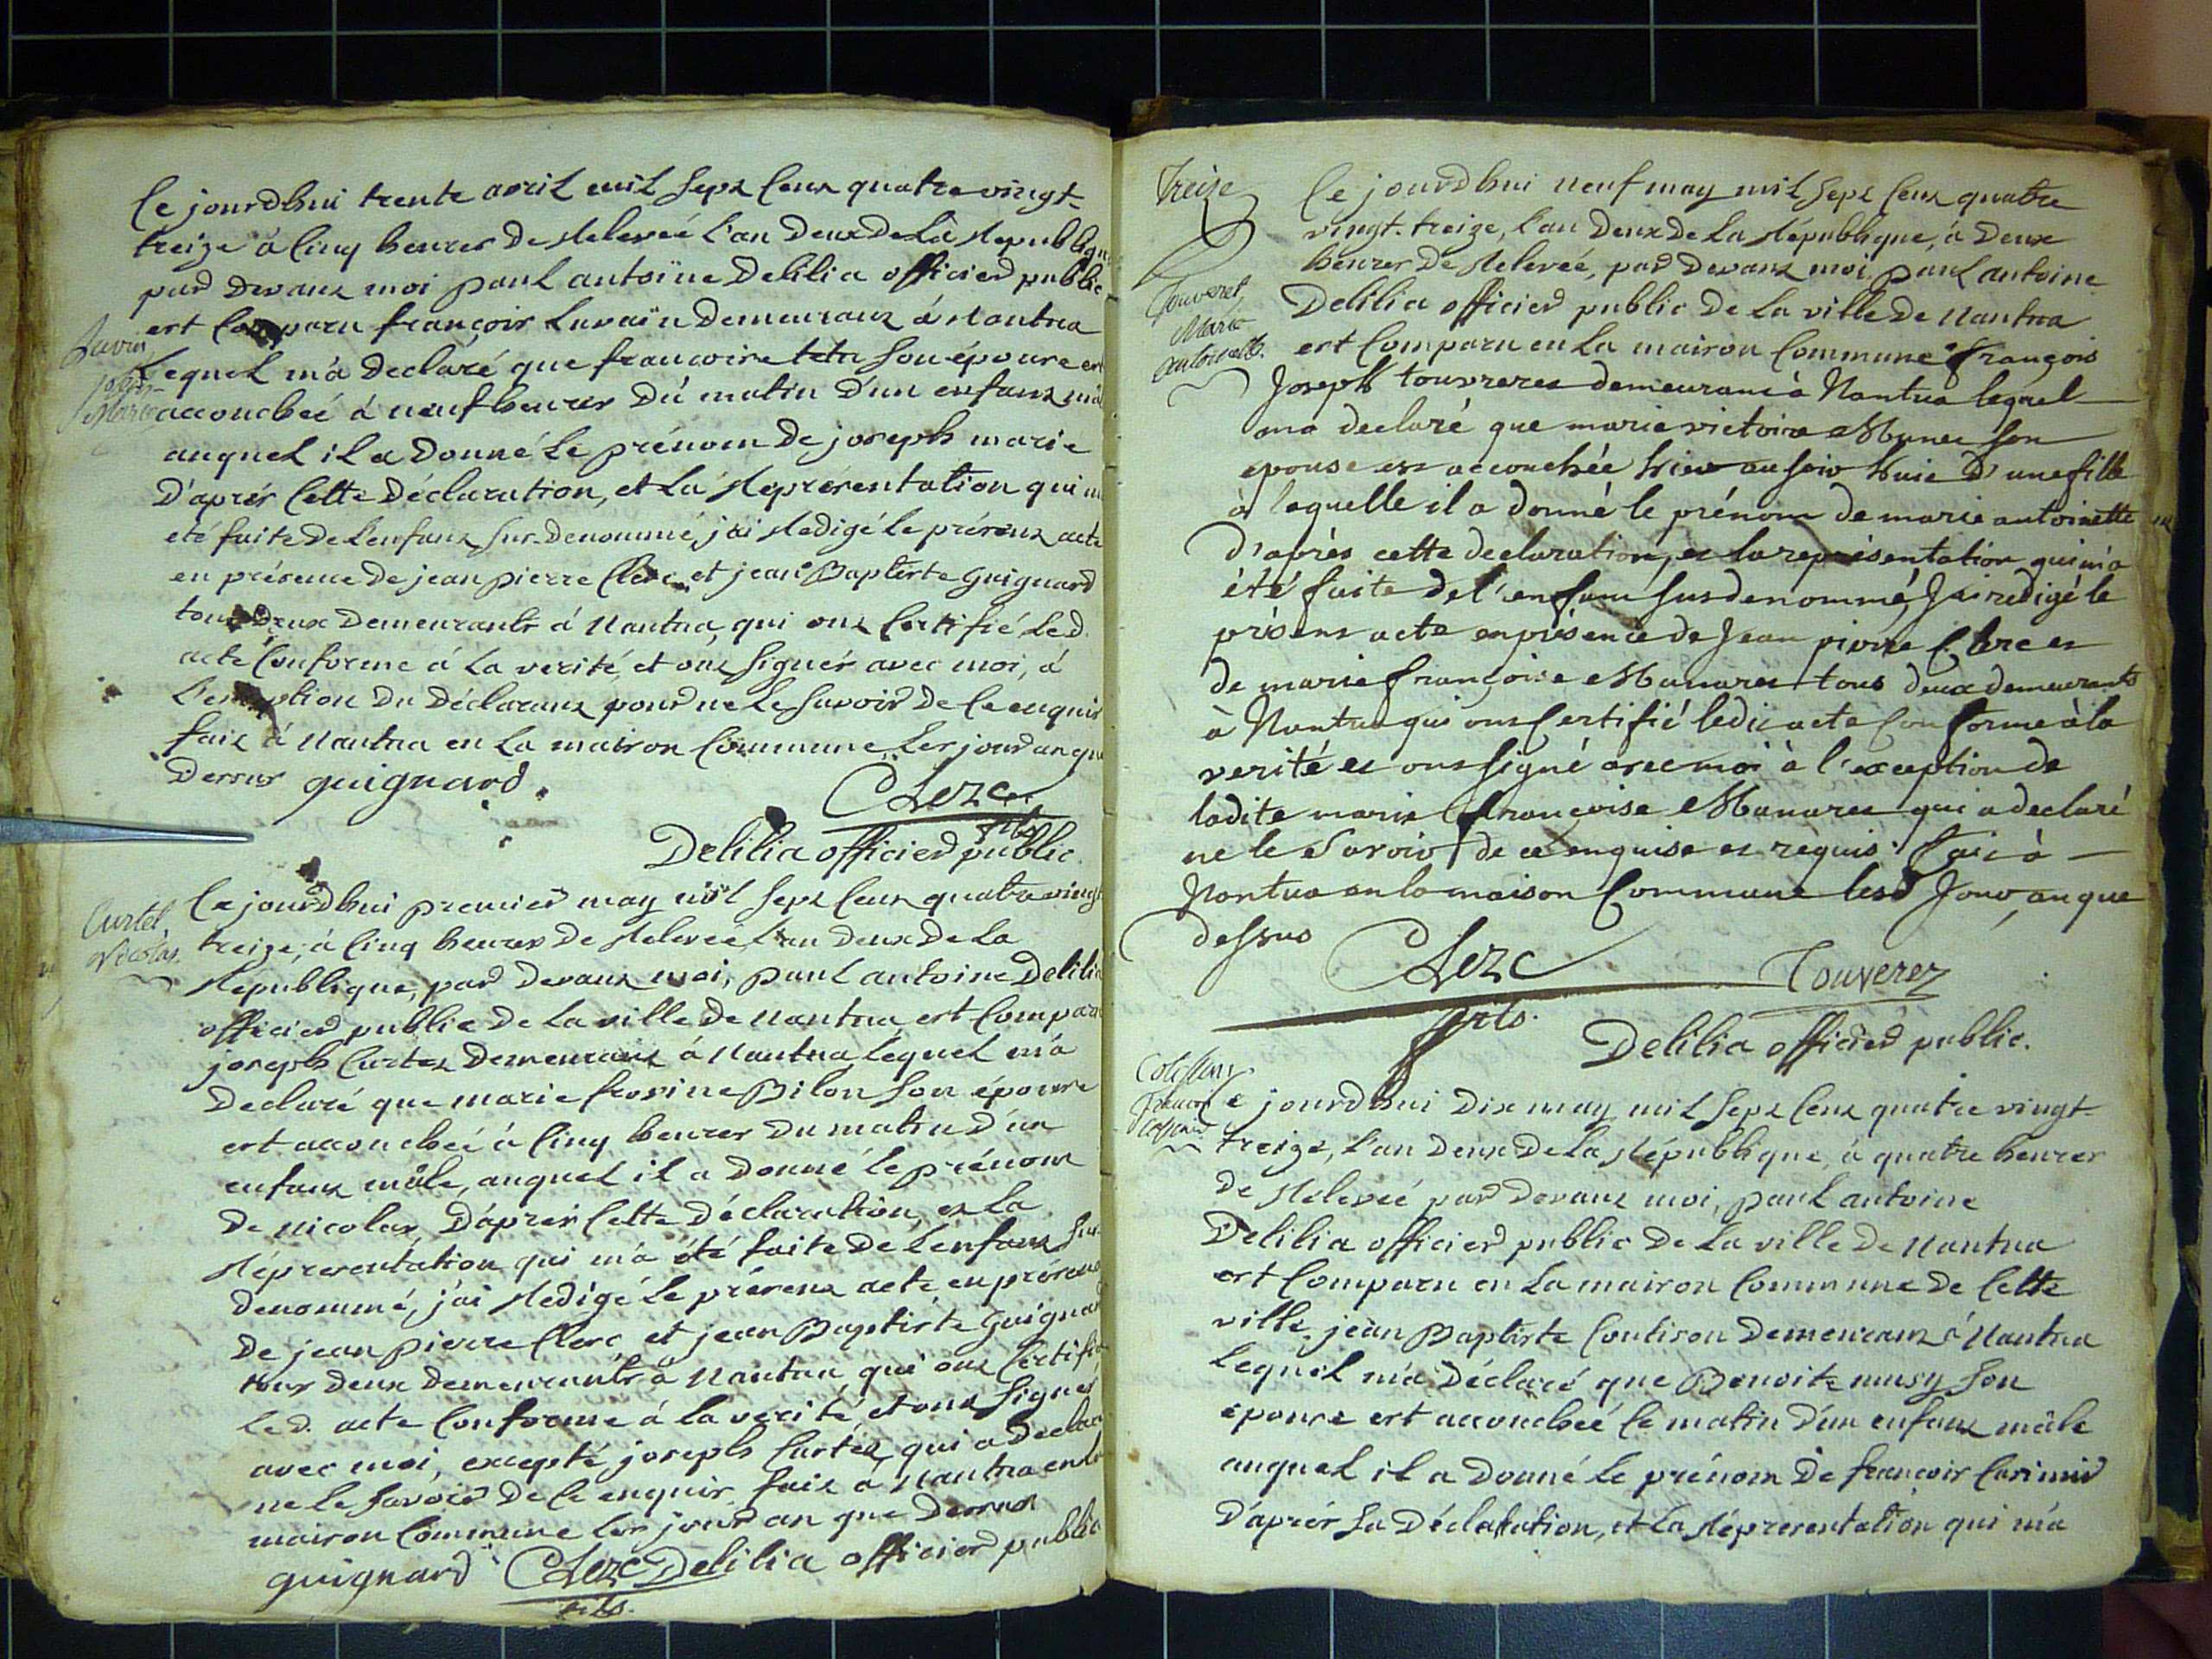 Ce jourdhui trente avril mil sept cent quatre vingt
treize à cinq heures de relevée l'an deux de la républiqu
par devant moi paul antoine Delilia officier public
est comparu françois Luvain demeurant à Nantua
lequel m'a declaré que francoise son épouse est
Joseph
Marie
accouchée à neuf heures du matin d'un enfant mâ
auquel il a donné le prénom de joseph marie
D'après cette déclaration, et la représentation qui m
été faite de l'enfant sur-denommé, j'ai redigé le présent acte
en présence de jean pierre Clerc et jean Baptiste Guignard
tous deux demeurants à Nantua, qui ont certifié led.
acte conforme à la verité, et ont signés avec moi, à
l'exception du déclarant pour ne le savoir de ce enquis
fait à Nantua en la maison commune les jour an que
dessus guignard.
Clerc
fils
Delilia officier public.
Curtet
Nicolas.
Ce jourdhui premier may mil sept cent quatre vingt
treize, à cinq heures de relevée l'an deux de la
république, par devant moi, paul antoine Delilia
officier public de la ville de nantua, est compar
joseph Curtet demeurant à Nantua lequel m'a
declaré que marie frosine Bilon son épouse
est accouchée à cinq heures du matin d'un
enfant mâle, auquel il a donné le prénom
de nicolas, D'après cette déclaration, et la
représentation qui m'a été faite de l'enfant sus
denommé, j'ai redigé le présent acte, en présence
de jean pierre Clerc, et jean Baptiste Guignard
tous deux demeurants à Nantua, qui ont certifié
led. acte conforme à la verité, et ont signés
avec moi, excepté joseph Curtet, qui a declaré
ne le savoir de ce enquis fait à Nantua en la
maison commune les jour an que dessus
guignard Clerc Delilia officier public
fils.
Treize
Touveret
Marie
antoinette.
Ce jourdhui neuf may mil sept cent quatre
vingt-treize, l'an deux de la république, à deux
heures de relevée, par devant moi paul antoine
Delilia officier public de la ville de Nantua
est comparu en la maison commune françois
Joseph touveret demeurant à Nantua lequel
ma declaré que marie victoire son
epouse est accouchée hier au soir d'une fille
à laquelle il a donné le prénom de marie antoinette
d'après cette declaration, et la représentation qui m'a
été faite de l'enfant susdenommé, J'ai redigé le
présent acte en présence de Jean pierre Clerc et
de marie françoise tous deux demeurants
à Nantua qui ont certifié ledit acte conforme à la
verité et ont signé avec moi à l'exception de
ladite marie françoise qui a declaré
ne le savoir de ce enquise et requis. fait à
Nantua en la maison commune lesd Jour, an que
dessus
Clerc Touveret
fils.
Delilia officier public.
françois
Ce jourdhui dix may mil sept cent quatre vingt
treize, l'an deux de la république, à quatre heures
de relevée par devant moi, paul antoine
Delilia officier public de la ville de Nantua
est comparu en la maison commune de cette
ville jean Baptiste Coutison demeurant à Nantua
lequel m'a déclaré que Benoite musy son
épouse est accouchée ce matin d'un enfant mâle
auquel il a donné le prénom de françois Casimir
D'après sa déclaration, et la représentation qui m'a